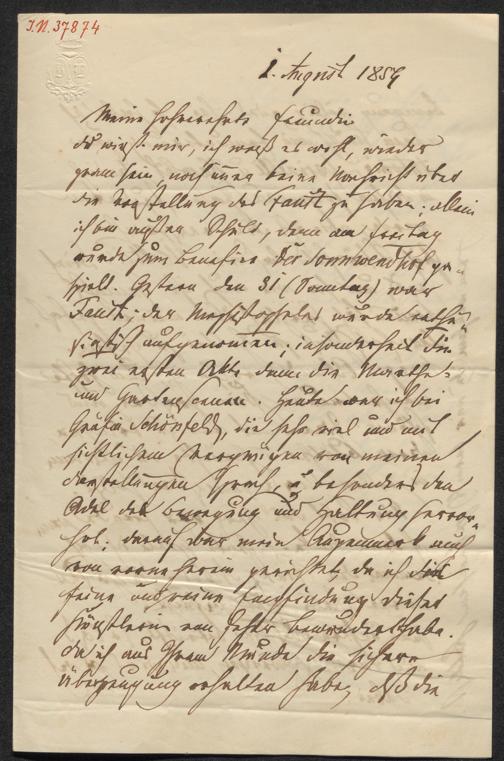 I.N. 37874
1. August 1859
Meine hochverehrte Freundin
Du wirst mir, ich weiß es wohl, wieder
gram sein, noch immer keine Nachricht über
die Vorstellung des Faust zu haben; allein
ich bin außer Schuld, denn am Freitag
wurde zum Benefice Der Sonnwendhof ge-
spielt. Gestern den 31 (Sonntag) war
Faust; der Mephistopheles wurde enthu-
siastisch aufgenommen; insonderheit die
zwei ersten Akte dann die Marthe
und Gartenscenen. Heute war ich bei
Gräfin Schönfeld, die sehr viel und mit
sichtlichem Vergnügen von meinen
Darstellungen sprach, u besonders den
Adel der Bewegung und Haltung hervor-
hob; darauf war mein Augenmerk auch
von vorneherein gerichtet, da ich die
feine und reine Empfindung dieser
Künstlerin von jeher bewundert habe.
Da ich aus Ihrem Munde die sichere
Überzeugung erhalten habe, daß die